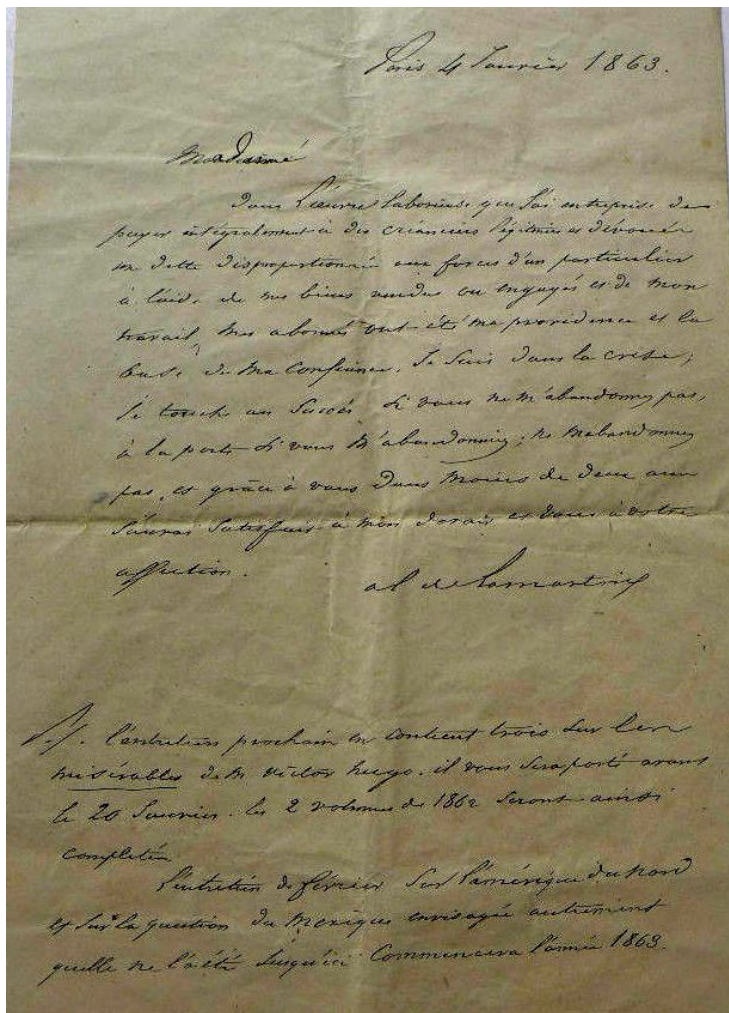 Paris 4 Janvier 1863.
Madame
Dans l'œuvre laborieuse que j'ai entreprise de
payer intégralement à des créanciers légitimes et dévoués
une dette disproportionnée aux forces d'un particulier
à l'aide de mes biens vendus ou engagés et de mon
travail, mes abonnés ont été ma providence et la
base de ma confiance. Je suis dans la crise;
je touche au succès si vous ne m'abandonnez pas,
à la perte si vous m'abandonniez; ne m'abandonnez
pas, et grâce à vous dans moins de deux ans
j'aurai satisfait à mon devoir et vous à votre
affection.
al de Lamartine
P.S. l'entretien prochain en contient trois sur les
misérables de M. Victor hugo. il vous sera porté avant
le 20 Janvier. les 2 volumes de 1862 seront ainsi
completés
l'entretien de février sur l'amérique du nord
et sur la question du Mexique envisagée autrement
quelle ne l'a été jusqu'ici commencera l'année 1863.